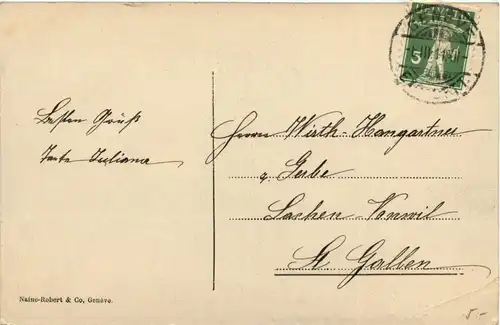 HELVETIA
5
Besten Gruß
Tante Juliana
Herrn Wirth-Hamgartner
z. Erbe
Lachen-Vonwil
St. Gallen
Naine-Robert & Co, Genève.
5.-